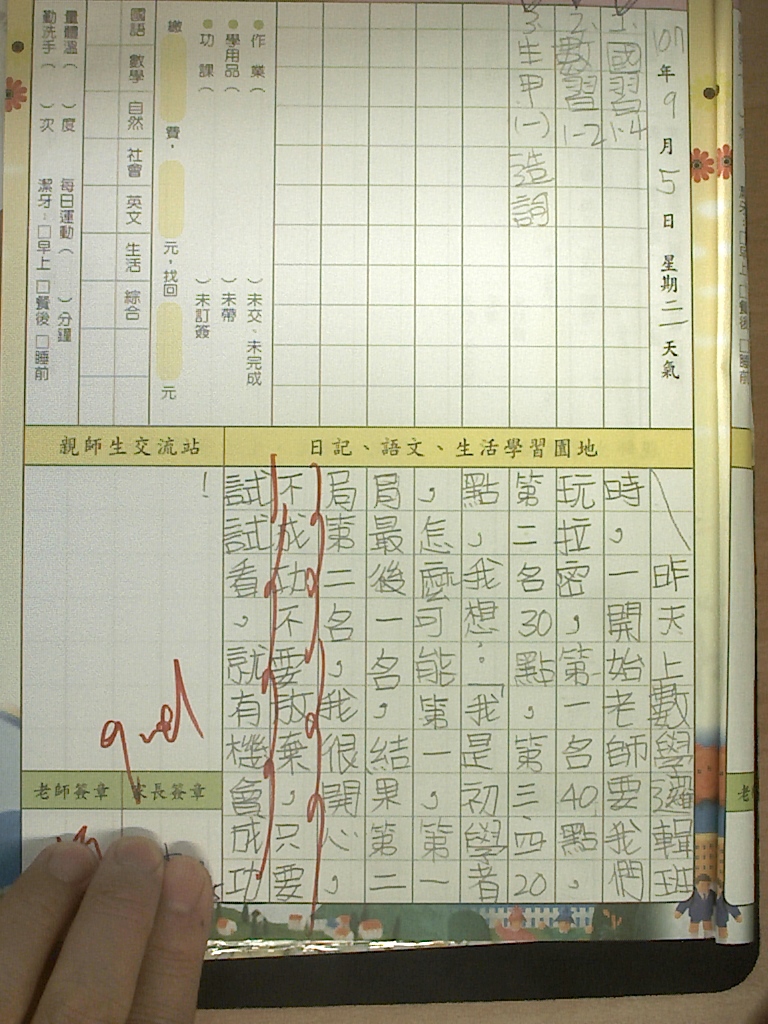 107年9月5日 星期二 天氣
1.國習1-4
2.數習1-2
3.生甲(一)造詞
作業（ ）未交、未完成
學用品（ ）未帶
功課（ ）未訂簽
繳 費， 元，找回 元
國語 數學 自然 社會 英文 生活 綜合
量體溫（ ）度 每日運動（ ）分鐘
勤洗手（ ）次 潔牙：□早上 □餐後 □睡前
日記、語文、生活學習園地
昨天上數學邏輯班
時，一開始老師要我們
玩拉密，第一名40點，
第二名30點，第三四20
點，我想。「我是初學者
，怎麼可能第一，第一
局最後一名，結果第二
局第二名，我很開心，
不成功不要放棄，只要
試試看，就有機會成功
！
親師生交流站
老師簽章
家長簽章